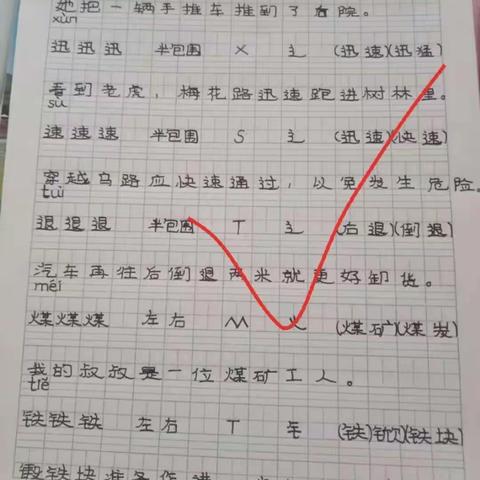 她把一辆手推车推到了右院。
xùn
迅迅迅 半包围 X 辶 (迅速)(迅猛)
看到老虎，梅花路迅速跑进树林里。
sù
速速速 半包围 S 辶 (迅速)(快速)
穿越马路应快速通过，以免发生危险。
tuì
退退退 半包围 T 辶 (右退)(倒退)
汽车再往后倒退两米就更好卸货。
méi
煤煤煤 左右 M 火 (煤矿)(煤炭)
我的叔叔是一位煤矿工人。
tiě
铁铁铁 左右 T 钅 (铁)(铁块)
锻铁块准备作进